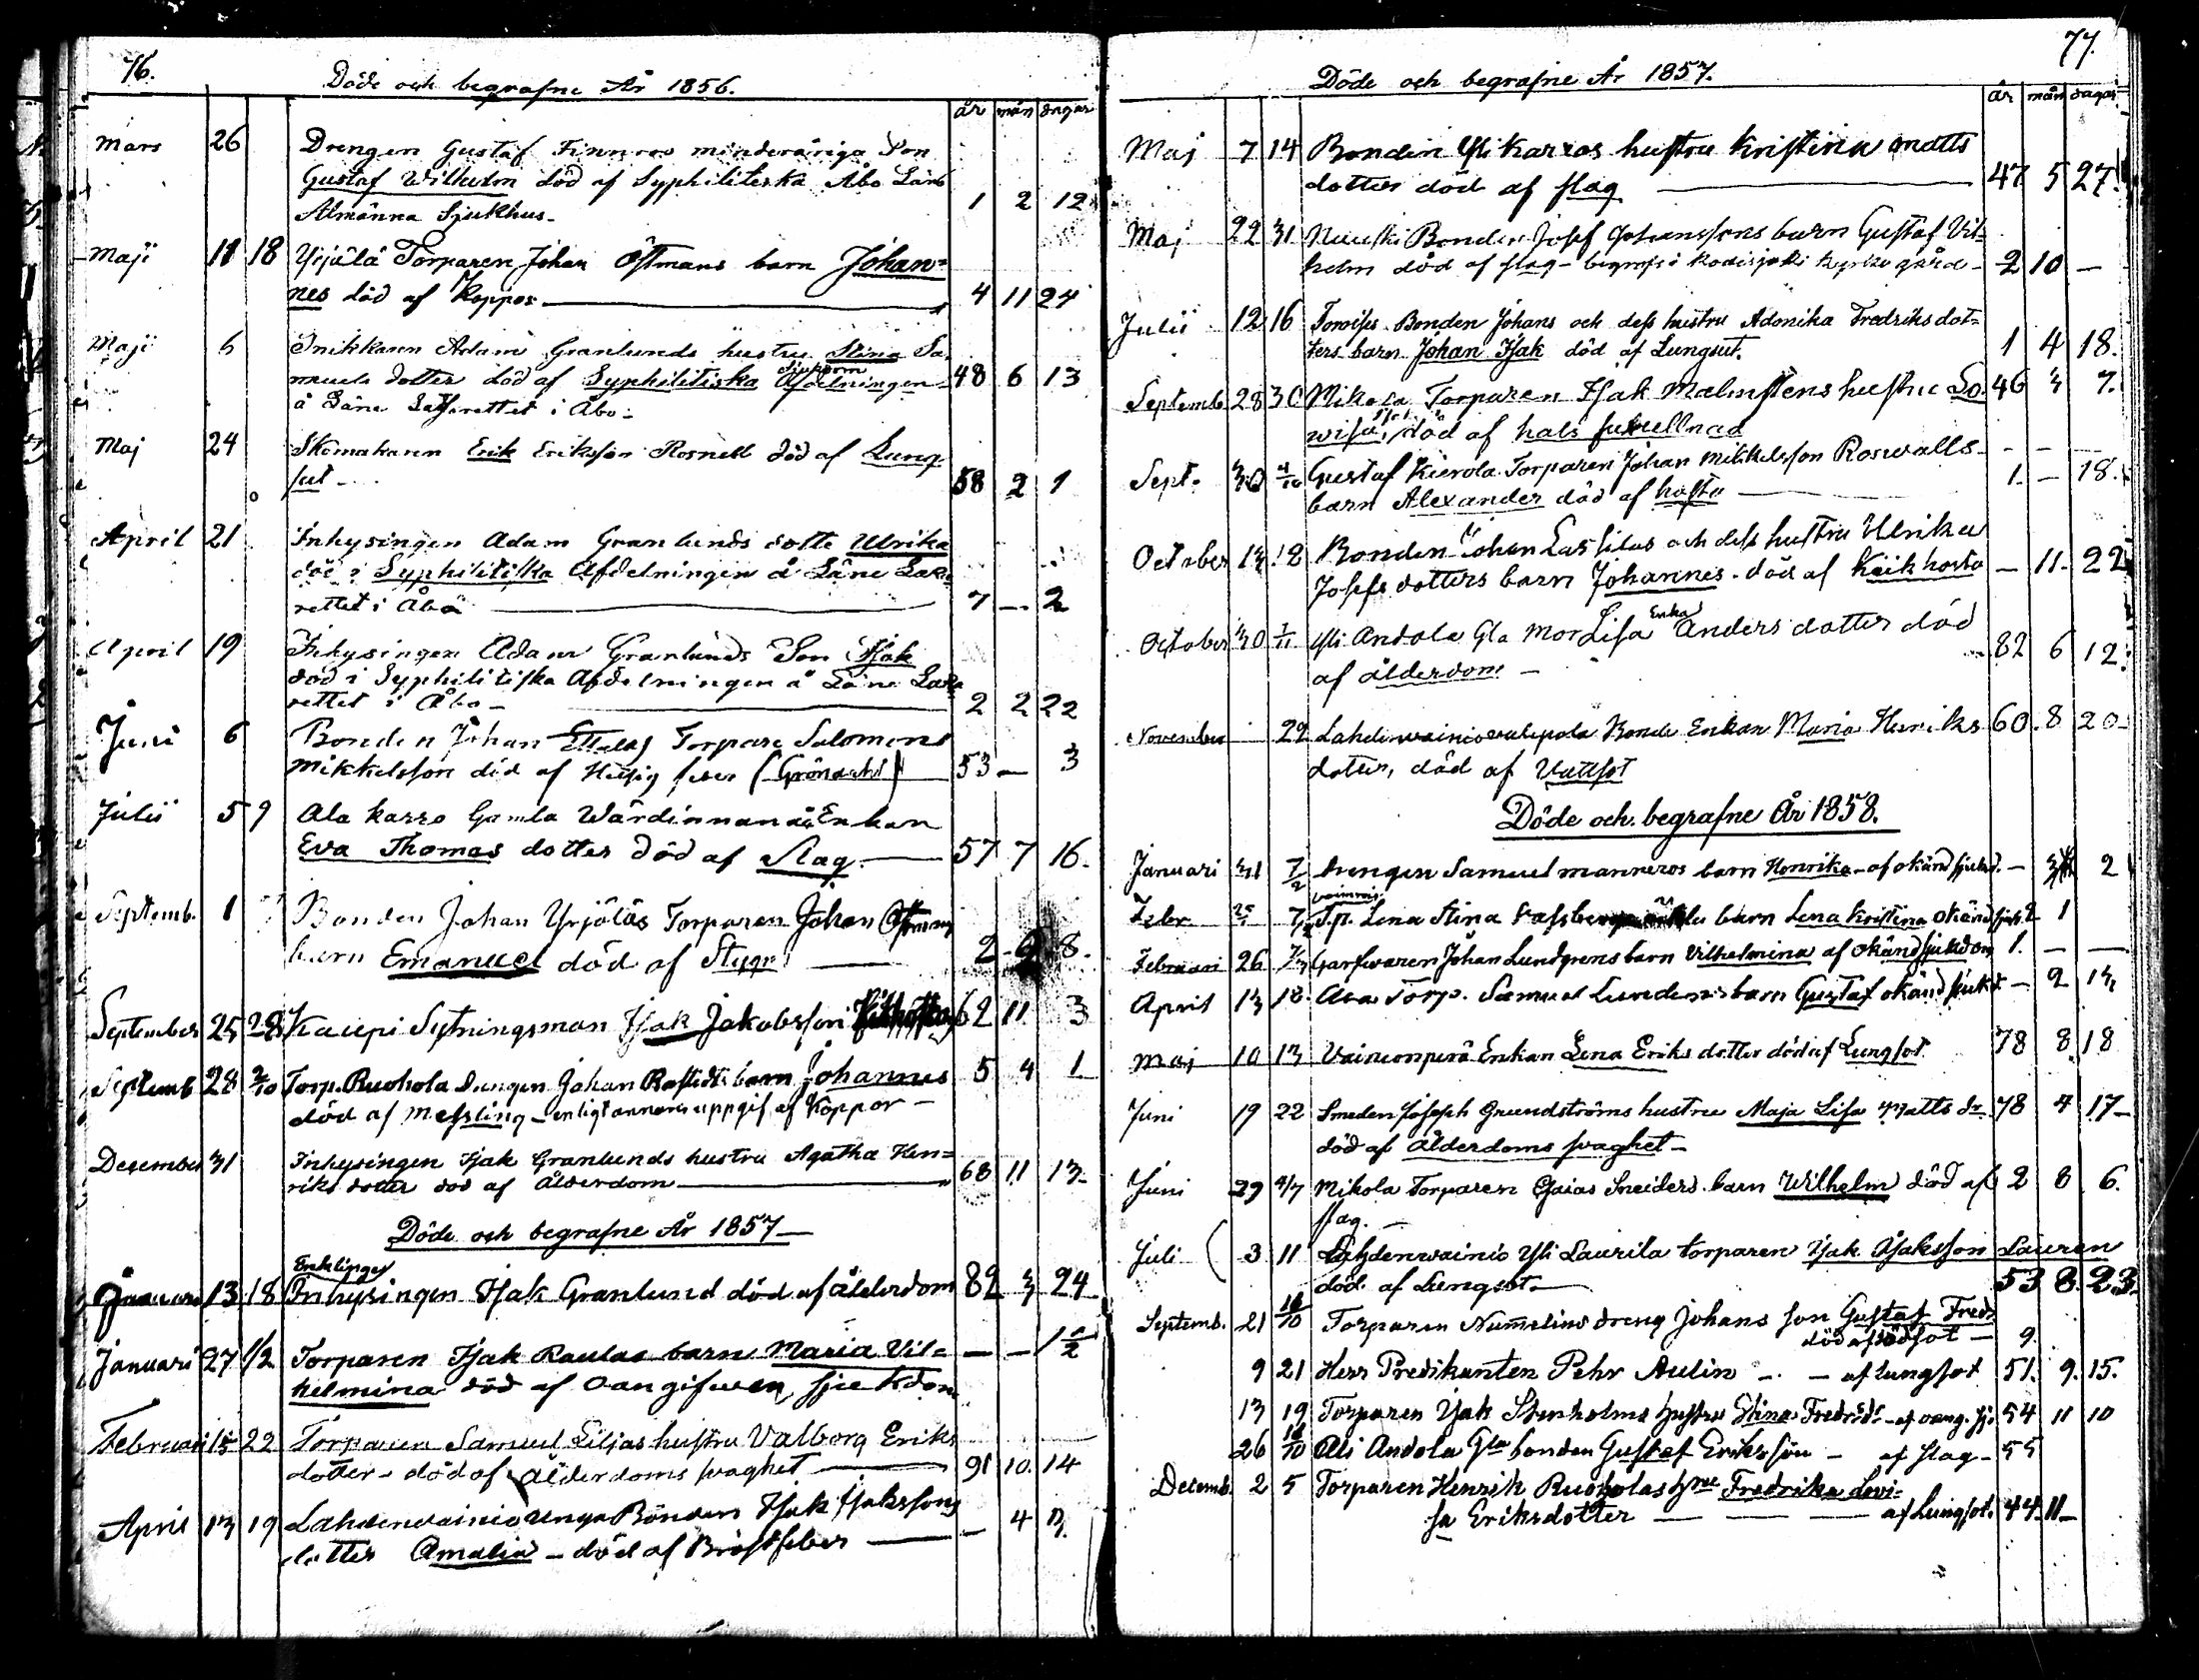 76.
Döde och begrafne År 1856.
år mån dagar
Mars 26 Drengen Gustaf Finnros minderåriga Son
Gustaf Wilhelm död af Syphilitiska Åbo Läns
Almänna Sjukhus. 1 2 12
Maji 11 18 Yrjälä Torparen Johan Östmans barn Johan=
nes död af Koppor 4 11 24
Maji 6 Snikkarn Adam Granlunds hustru Stina Sa-
muels dotter död af Syphilitiska Sjukdom Afdelningen 48 6 13
å Läne Lazarettet i Åbo.
Maj 24 Skomakarn Erik Eriksson Rosnell död af Lung
sot 58 2 1
April 21 Inhysingen Adam Granlunds dotte Ulrika
död i Syphilitiska Afdelningen å Läne Laza
rettet i Åbo 7 — 2
April 19 Inhysingen Adam Granlunds Son Isak
död i Syphilitiska Afdelningen å Läne Laza
rettet i Åbo 2 2 22
Juni 6 Bonden Johan Torpare Salomons
Mikkelsson död af Hitsig feber 53 — 3
Julii 5 9 Ala Karro Gamla Wärdinnan Enkan
Eva Thomas dotter död af Slag. 57 7 16.
Septemb. 1 Bonden Johan Yrjöläs Torparen Johan Östmans
barn Emanuel död af 2 8.
September 25 28 Kaupi Sytningsman Isak Jakobsson 62 11 3
Septemb 28 2/10 Torp. Ruohola Drengen Johan Rostedts barn Johannes 5 4 1
död af Messling – enligt annans uppgif af Koppor –
December 31 Inhysingen Isak Granlunds hustru Agatha Hen=
riks dotter död af Ålderdom 68 11 13
Döde och begrafne År 1857
Enklinger
Januari 13 18 Inhysingen Isak Granlund död af ålderdom 82 3 24
Januari 27 1/2 Torparen Isak Raulas barn Maria Vil= — — 1/2
helmina död af oangifwen sjukdom
Februari 15 22 Torparen Samuel Liljas hustru Valborg Eriks
dotter – död af ålderdoms svaghet 91 10. 14
April 13 19 Lahdenwainio unga Bonden Isak Isakssons
dotter Amalia – död af Bröstfeber — 4
77.
Döde och begrafne År 1857.
år mån dagar
Maj 7 14 Bonden Yli Karros hustru Kristina Matts
dotter död af slag 47 5 27.
Maj 22 31 Bonden Josef Johanssons barn Gustaf Vil=
helm död af slag – begrafs i Kodisjoki kyrko gård – 2 10 —
Julii 12 16 Bonden Johans och dess hustru Adonika Fredriks dot=
ters barn Johan Isak död af Lungsot. 1 4 18.
Septemb 28 30 Mikola Torparen Isak Malmstens hustru Lo- 46 3 7.
wisa, död af hals sukvellnad
Sept. 30 4/10 Gustaf Kierola Torparen Johan Mikkelsson Roswalls
barn Alexander död af hosta 1. — 18.
October 13 18 Bonden Johan Lassilas och dess hustru Ulrika
Josefs dotters barn Johannes – död af kikhosta — 11 22
October 30 1/11 Yli Andola Gla Mor Lisa Enka Anders dotter död
af ålderdom — 82 6 12.
November 22 Lahdenwainio Bonde Enkan Maria Henriks 60. 8 20
dotter, död af Vattsot
Döde och begrafne År 1858.
Januari 31 7/2 Drengen Samuel Manneros barn Henrika – af okänd sjukd. — 2
Febr 7/2 Tjp. Lena Stina barn Lena Kristina okänd sjuk 1
Februari 26 7/3 Garfwaren Johan Lundgrens barn Vilhelmina af okänd sjukdom 1. — —
April 13 18. Torp. Samuel Lundens barn Gustaf okänd sjukd — 2 13
Maj 10 13 Vainionperä Enkan Lena Eriks dotter död af Lungsot. 78 8 18
Juni 19 22 Smeden Joseph Grundströms hustru Maja Lisa Matts dr 78 4 17
död af Ålderdoms svaghet –
Juni 29 4/7 Mikola Torparen Esaias Sneiders barn Wilhelm död af 2 8 6.
slag. —
Juli 3 11 Lahdenwainio Yli Laurila torparen Isak Isaksson Lauren
död af Lungsot. 53 8. 23.
Septemb. 21 10/10 Torparen Numelins dreng Johans son Gustaf Fredr
död af rödsot — 9.
9 21 Herr Predikanten Pehr Aulin – – af lungsot 51. 9. 15.
13 19 Torparen Isak Stenholms Hustru Stina Fredriksdr – af oang. sju. 54 11 10
26 10/10 Ali Andola Gla bonden Gustaf Eriksson – af slag – 55
Decemb. 2 5 Torparen Henrik Ruoholas Hru Fredrika Lovi=
sa Eriksdotter — — — af Lungsot. 44 11